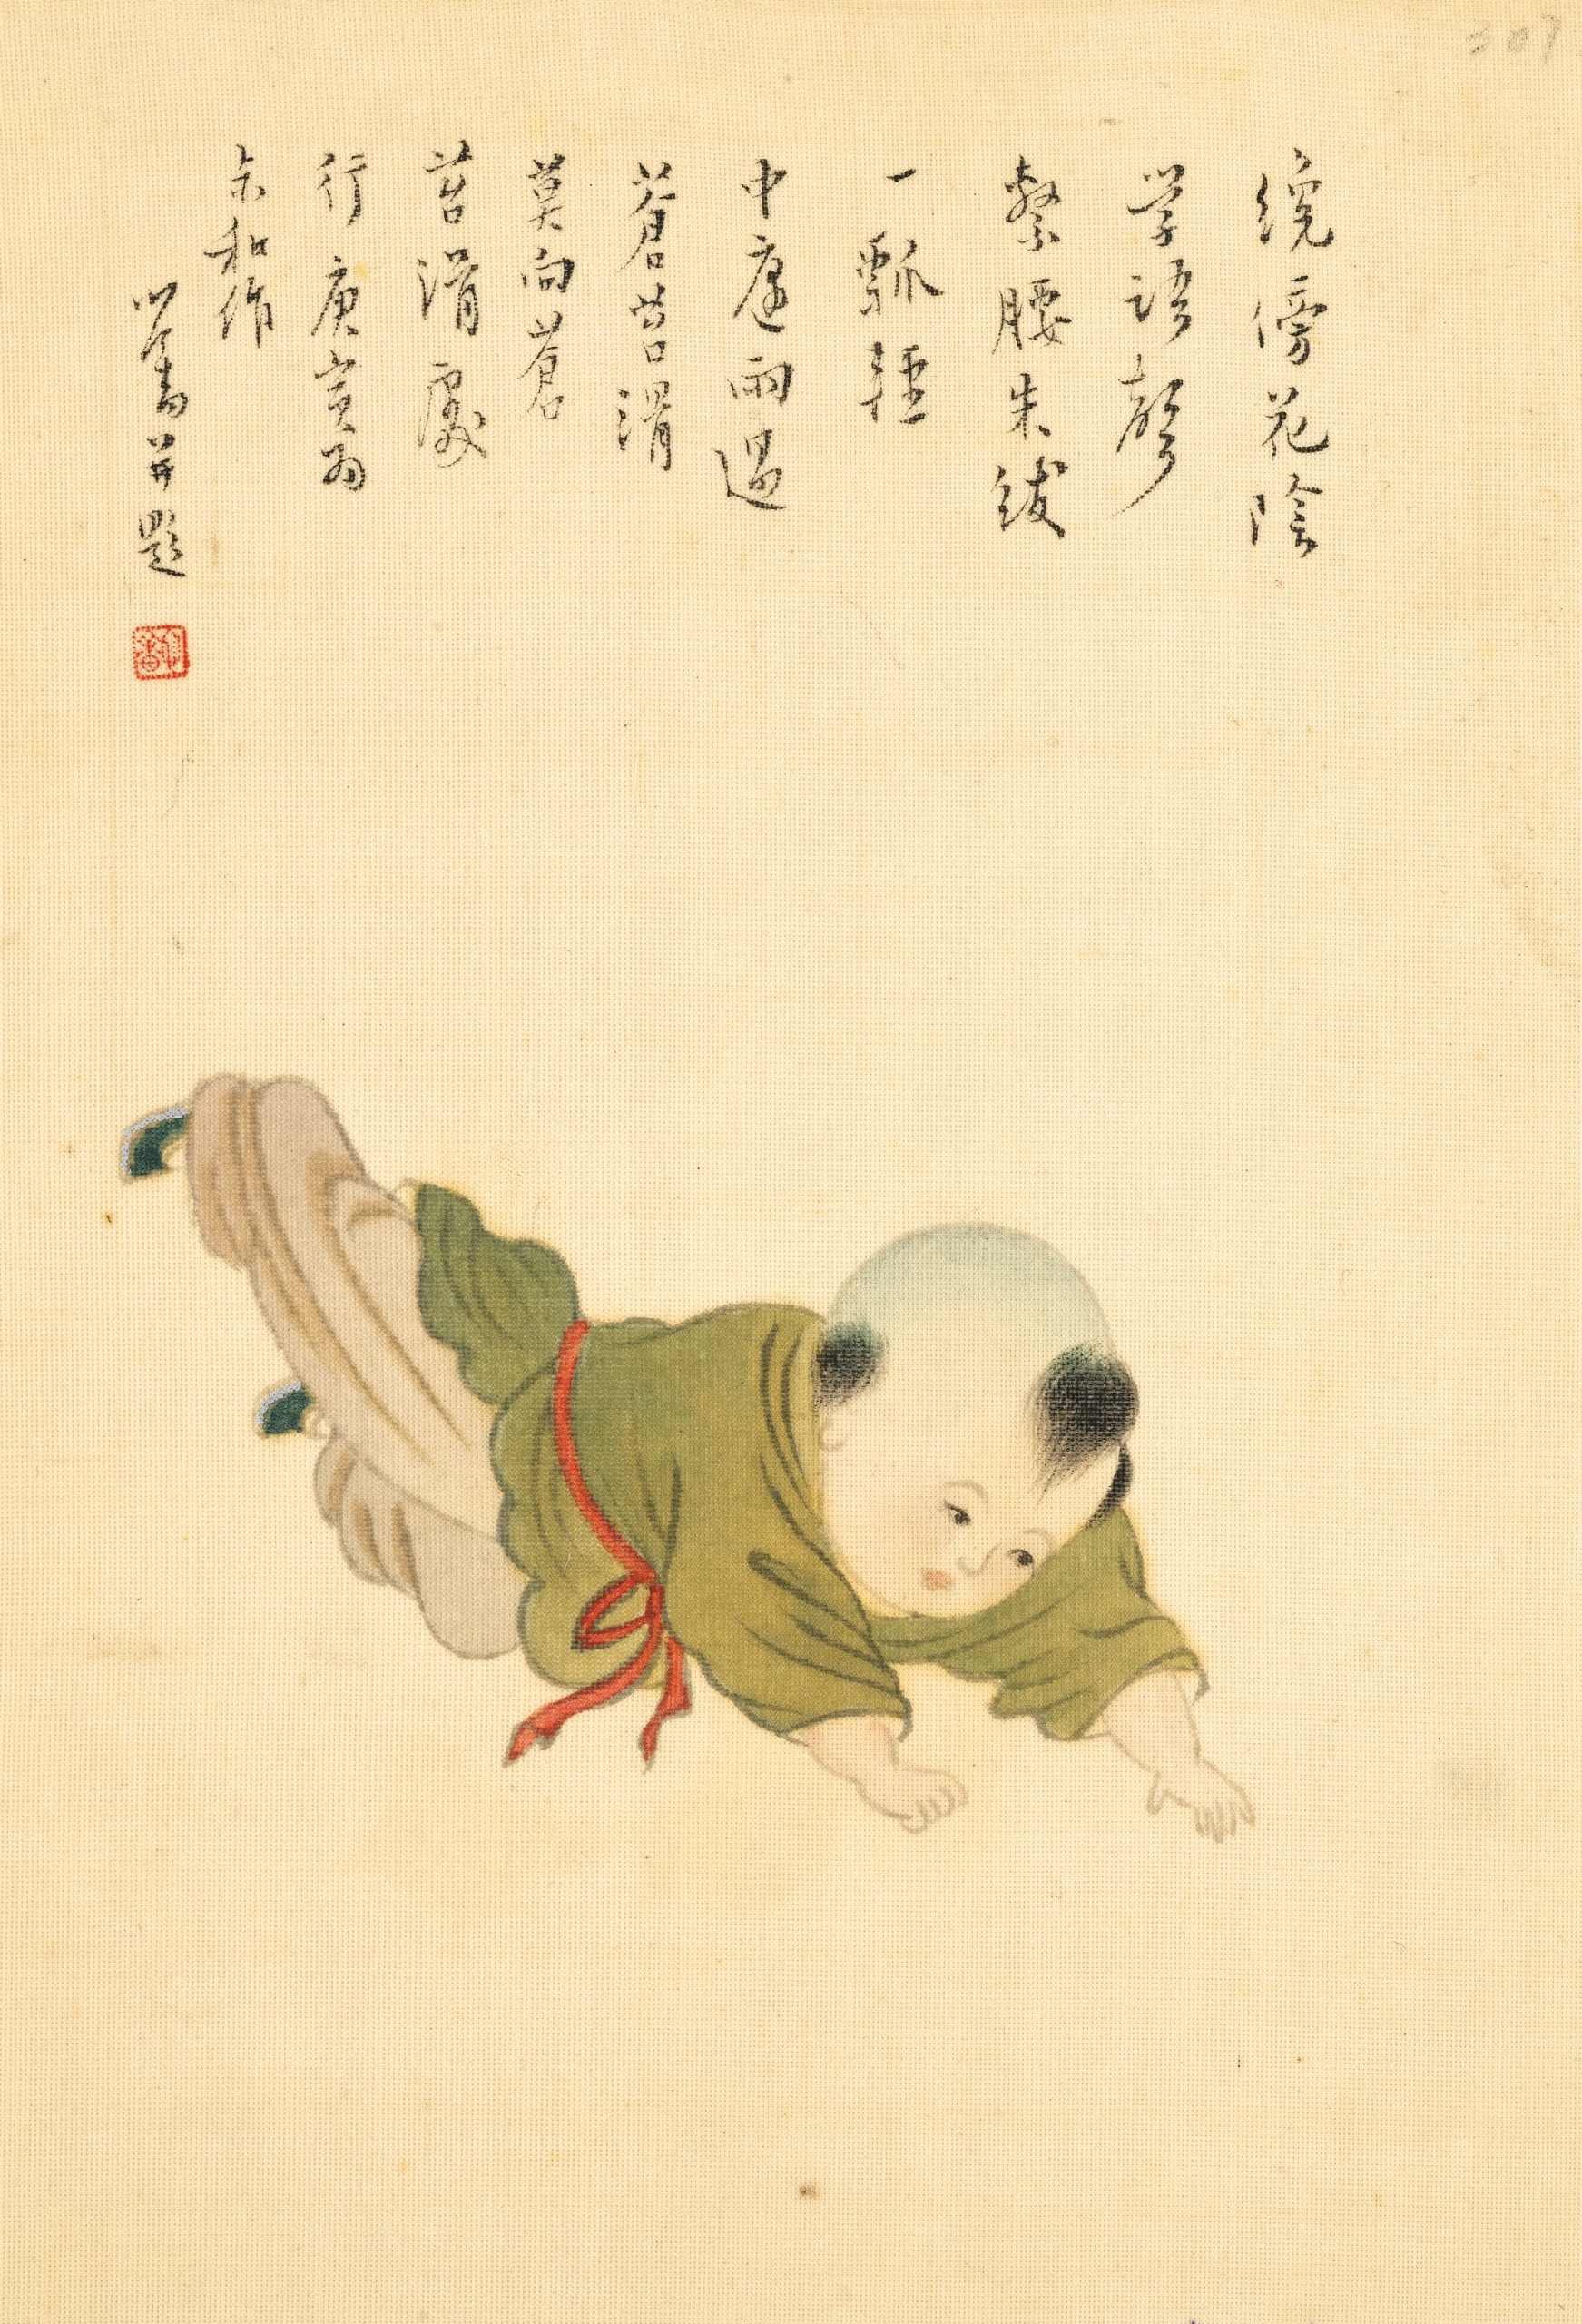 繞傍花陰
学語聲
繫腰朱紱
一瓢輕
中庭雨過
蒼苔滑
莫向蒼
苔滑處
行 庚寅為
余和作
心畬并題
307